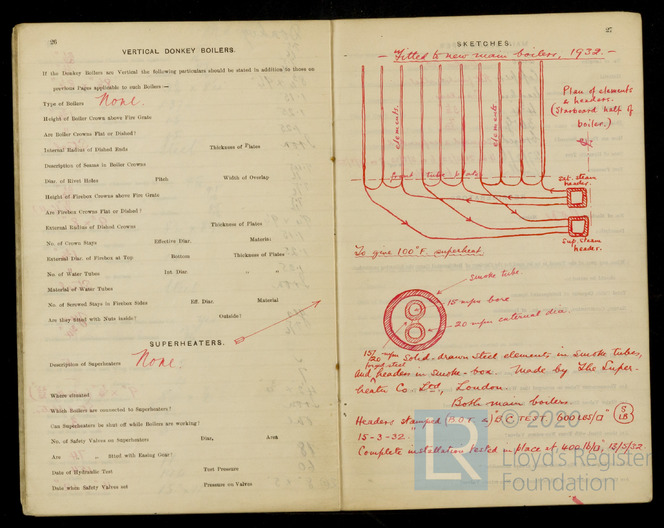 26
VERTICAL DONKEY BOILERS.
If the Donkey Boilers are Vertical the following particulars should be stated in addition to those on
previous Pages applicable to such Boilers:—
Type of Boilers None.
Height of Boiler Crown above Fire Grate
Are Boiler Crowns Flat or Dished?
Internal Radius of Dished Ends Thickness of Plates
Description of Seams in Boiler Crowns
Diar. of Rivet Holes Pitch Width of Overlap
Height of Firebox Crowns above Fire Grate
Are Firebox Crowns Flat or Dished?
External Radius of Dished Crowns Thickness of Plates
No. of Crown Stays Effective Diar. Material
External Diar. of Firebox at Top Bottom Thickness of Plates
No. of Water Tubes Int. Diar. " "
Material of Water Tubes
No. of Screwed Stays in Firebox Sides Eff. Diar. Material
Are they fitted with Nuts inside? Outside?
SUPERHEATERS.
Description of Superheaters None.
Where situated
Which Boilers are connected to Superheaters?
Can Superheaters be shut off while Boilers are working?
No. of Safety Valves on Superheaters Diar. Area
Are " " fitted with Easing Gear?
Date of Hydraulic Test Test Pressure
Date when Safety Valves set Pressure on Valves
27
SKETCHES.
— Fitted to new main boilers, 1932. —
Plan of elements
& headers.
(Starboard half of
boiler.)
elements.
elements
front tube plate
Sat. steam
header.
Sup. steam
header.
To give 100°F. superheat
smoke tube.
15 m/m bore
20 m/m external dia.
15/20 m/m Solid drawn steel elements in smoke tubes,
forged steel
and headers in smoke-box. Made by The Super-
heater Co Ltd, London.
Both main boilers.
Headers stamped (B.O.T. &) TEST. 600 LBS/□" S LB
15-3-32.
Complete installation tested in place at 400 lb/□", 18/5/32.
© 2020
LR
Lloyd's Register
Foundation